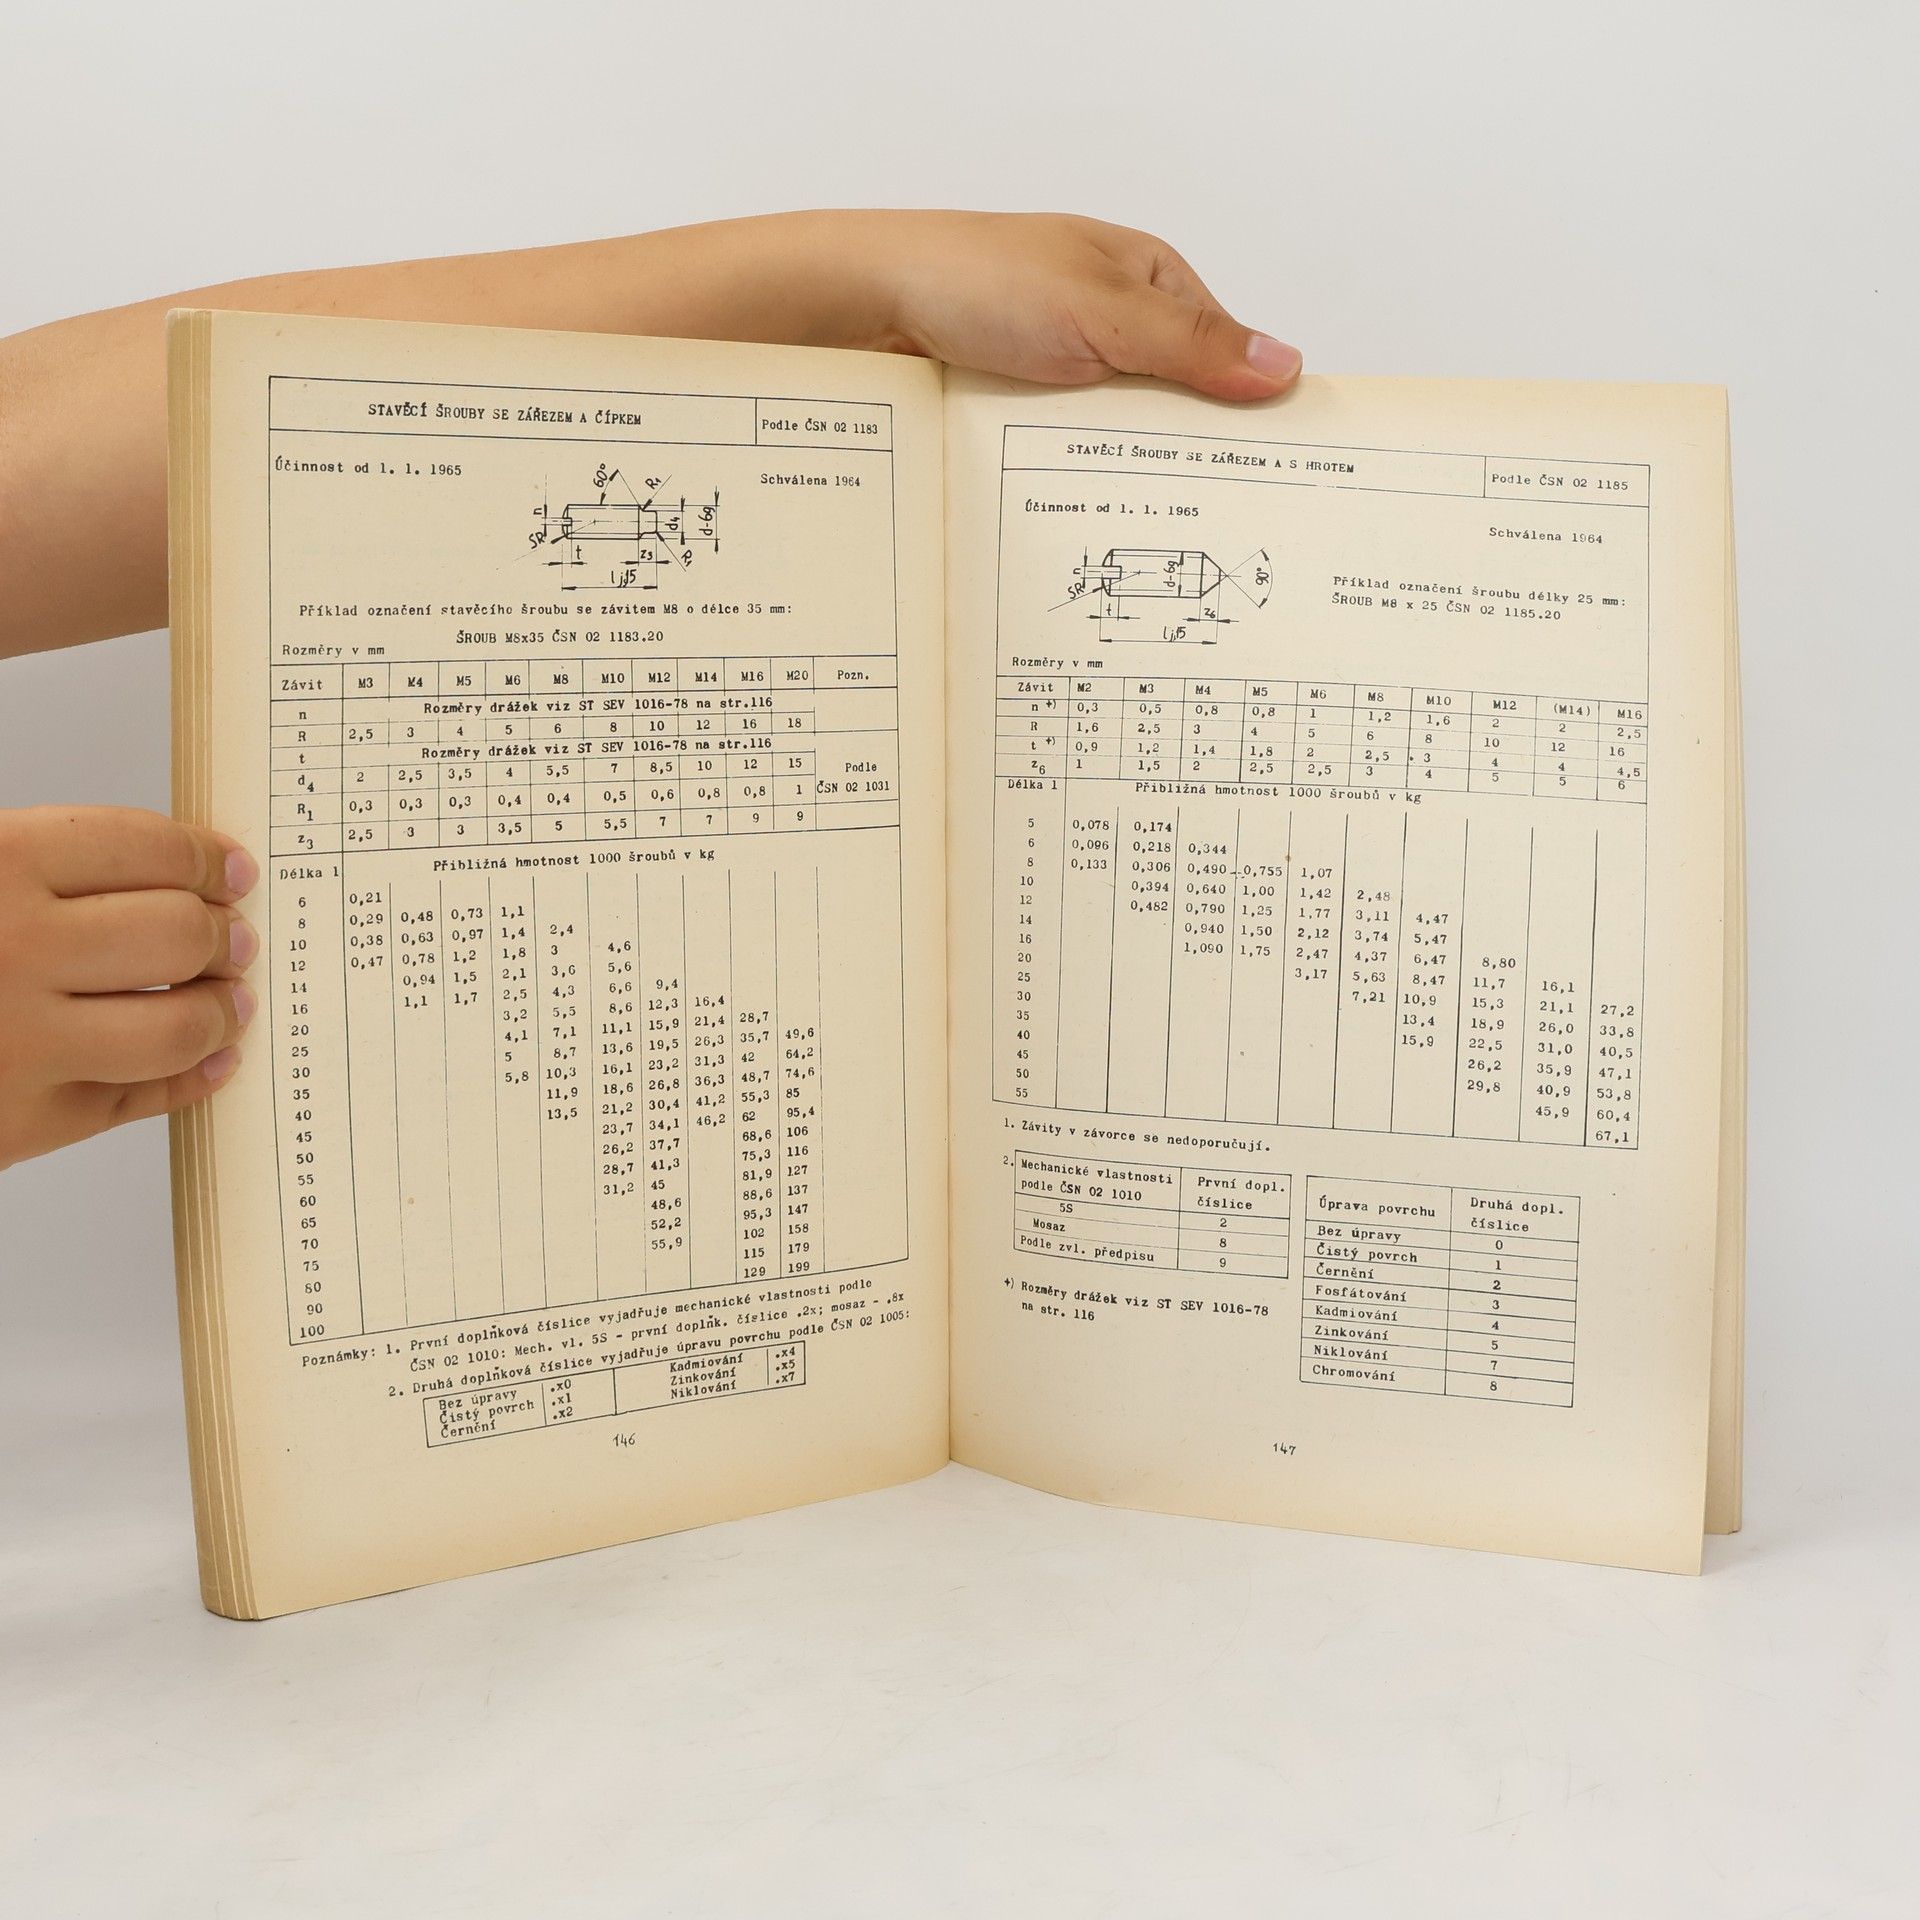 STAVĚCÍ ŠROUBY SE ZÁŘEZEM A ČÍPKEM Podle ČSN 02 1183
Účinnost od 1. 1. 1965 Schválena 1964
60° R₁
n d₄ d-6g
SR t z₃ R₁
l j15
Příklad označení stavěcího šroubu se závitem M8 o délce 35 mm:
ŠROUB M8x35 ČSN 02 1183.20
Rozměry v mm
Závit M3 M4 M5 M6 M8 M10 M12 M14 M16 M20 Pozn.
n Rozměry drážek viz ST SEV 1016-78 na str.116
R 2,5 3 4 5 6 8 10 12 16 18
t Rozměry drážek viz ST SEV 1016-78 na str.116
d₄ 2 2,5 3,5 4 5,5 7 8,5 10 12 15 Podle
R₁ 0,3 0,3 0,3 0,4 0,4 0,5 0,6 0,8 0,8 1 ČSN 02 1031
z₃ 2,5 3 3 3,5 5 5,5 7 7 9 9
Délka l Přibližná hmotnost 1000 šroubů v kg
6 0,21
8 0,29 0,48 0,73 1,1
10 0,38 0,63 0,97 1,4 2,4
12 0,47 0,78 1,2 1,8 3 4,6
14 0,94 1,5 2,1 3,6 5,6
16 1,1 1,7 2,5 4,3 6,6 9,4
20 3,2 5,5 8,6 12,3 16,4
25 4,1 7,1 11,1 15,9 21,4 28,7
30 5 8,7 13,6 19,5 26,3 35,7 49,6
35 5,8 10,3 16,1 23,2 31,3 42 64,2
40 11,9 18,6 26,8 36,3 48,7 74,6
45 13,5 21,2 30,4 41,2 55,3 85
50 23,7 34,1 46,2 62 95,4
55 26,2 37,7 68,6 106
60 28,7 41,3 75,3 116
65 31,2 45 81,9 127
70 48,6 88,6 137
75 52,2 95,3 147
80 55,9 102 158
90 115 179
100 129 199
Poznámky: 1. První doplňková číslice vyjadřuje mechanické vlastnosti podle
ČSN 02 1010: Mech. vl. 5S - první doplňk. číslice .2x; mosaz - .8x
2. Druhá doplňková číslice vyjadřuje úpravu povrchu podle ČSN 02 1005:
Bez úpravy .x0 Kadmiování .x4
Čistý povrch .x1 Zinkování .x5
Černění .x2 Niklování .x7
146
STAVĚCÍ ŠROUBY SE ZÁŘEZEM A S HROTEM Podle ČSN 02 1185
Účinnost od 1. 1. 1965
Schválena 1964
n d-6g 90°
SR t z₆
l j15
Příklad označení šroubu délky 25 mm:
ŠROUB M8 x 25 ČSN 02 1185.20
Rozměry v mm
Závit M2 M3 M4 M5 M6 M8 M10 M12 (M14) M16
n +) 0,3 0,5 0,8 0,8 1 1,2 1,6 2 2 2,5
R 1,6 2,5 3 4 5 6 8 10 12 16
t +) 0,9 1,2 1,4 1,8 2 2,5 3 4 4 4,5
z₆ 1 1,5 2 2,5 2,5 3 4 5 5 6
Délka l Přibližná hmotnost 1000 šroubů v kg
5 0,078 0,174
6 0,096 0,218 0,344
8 0,133 0,306 0,490 0,755 1,07
10 0,394 0,640 1,00 1,42 2,48
12 0,482 0,790 1,25 1,77 3,11 4,47
14 0,940 1,50 2,12 3,74 5,47
16 1,090 1,75 2,47 4,37 6,47 8,80
20 3,17 5,63 8,47 11,7 16,1
25 7,21 10,9 15,3 21,1 27,2
30 13,4 18,9 26,0 33,8
35 15,9 22,5 31,0 40,5
40 26,2 35,9 47,1
45 29,8 40,9 53,8
50 45,9 60,4
55 67,1
1. Závity v závorce se nedoporučují.
2. Mechanické vlastnosti První dopl.
podle ČSN 02 1010 číslice
5S 2
Mosaz 8
Podle zvl. předpisu 9
+) Rozměry drážek viz ST SEV 1016-78
na str. 116
Úprava povrchu Druhá dopl.
číslice
Bez úpravy 0
Čistý povrch 1
Černění 2
Fosfátování 3
Kadmiování 4
Zinkování 5
Niklování 7
Chromování 8
147